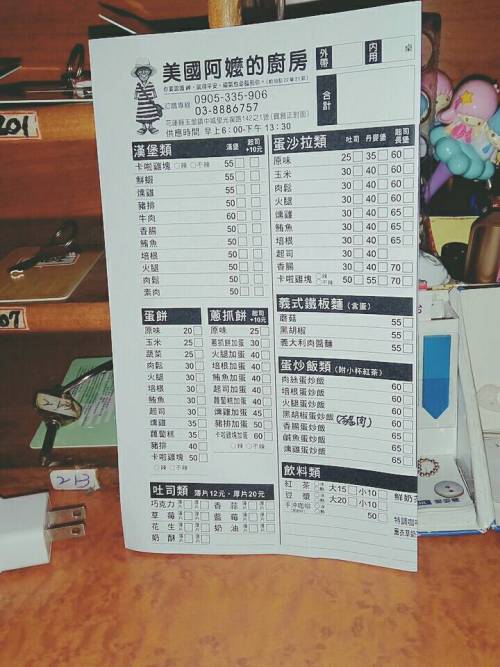 美國阿嬤的廚房
外帶
內用
桌
合計
訂購專線
0905-335-906
03-8886757
供應時間 早上6:00-下午13:30
漢堡類 漢堡 起司+10元
卡啦雞塊 ○辣 ○不辣 55
鮮蝦 55
燻雞 55
豬排 50
牛肉 60
香腸 50
鮪魚 50
培根 50
火腿 50
肉鬆 50
素肉 50
蛋沙拉類 吐司 丹麥堡 起司長堡
原味 25 35 60
玉米 30 40 60
肉鬆 30 40 60
火腿 30 40 60
燻雞 30 40 65
鮪魚 30 40 65
培根 30 40 65
起司 30 40
香腸 30 40 70
卡啦雞塊 辣 不辣 50 55 70
蛋餅
原味 20
玉米 25
蔬菜 25
肉鬆 30
火腿 30
培根 30
鮪魚 30
起司 30
燻雞 35
蘿蔔糕 35
豬排 40
卡啦雞塊 50
○辣 ○不辣
蔥抓餅 起司+10元
原味 25
蔥抓餅加蛋 30
火腿加蛋 40
培根加蛋 40
鮪魚加蛋 40
起司加蛋 40
蘿蔔糕加蛋 40
燻雞加蛋 45
豬排加蛋 50
卡啦雞塊加蛋 60
○辣 ○不辣
義式鐵板麵 (含蛋)
蘑菇 55
黑胡椒 55
義大利肉醬麵 55
蛋炒飯類 (附小杯紅茶)
肉絲蛋炒飯 60
培根蛋炒飯 60
火腿蛋炒飯 60
黑胡椒蛋炒飯 60
香腸蛋炒飯 60
鹹魚蛋炒飯 65
燻雞蛋炒飯 65
吐司類 薄片12元、厚片20元
巧克力 香蒜
草莓 藍莓
花生 奶油
奶酥
飲料類
紅茶 大15 小10
豆漿 大20 小10
50
鮮奶
特調咖
薰衣草奶
201
07
213